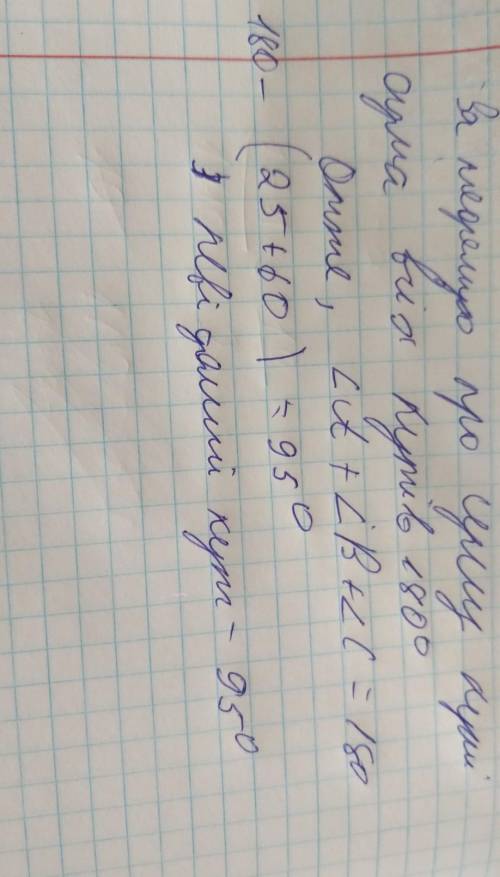 За теоремою про суму кутів
сума всіх кутів 180°
Отже, ∠A + ∠B + ∠C = 180
180 - (25 + 60) = 95°
3 невідомий кут - 95°